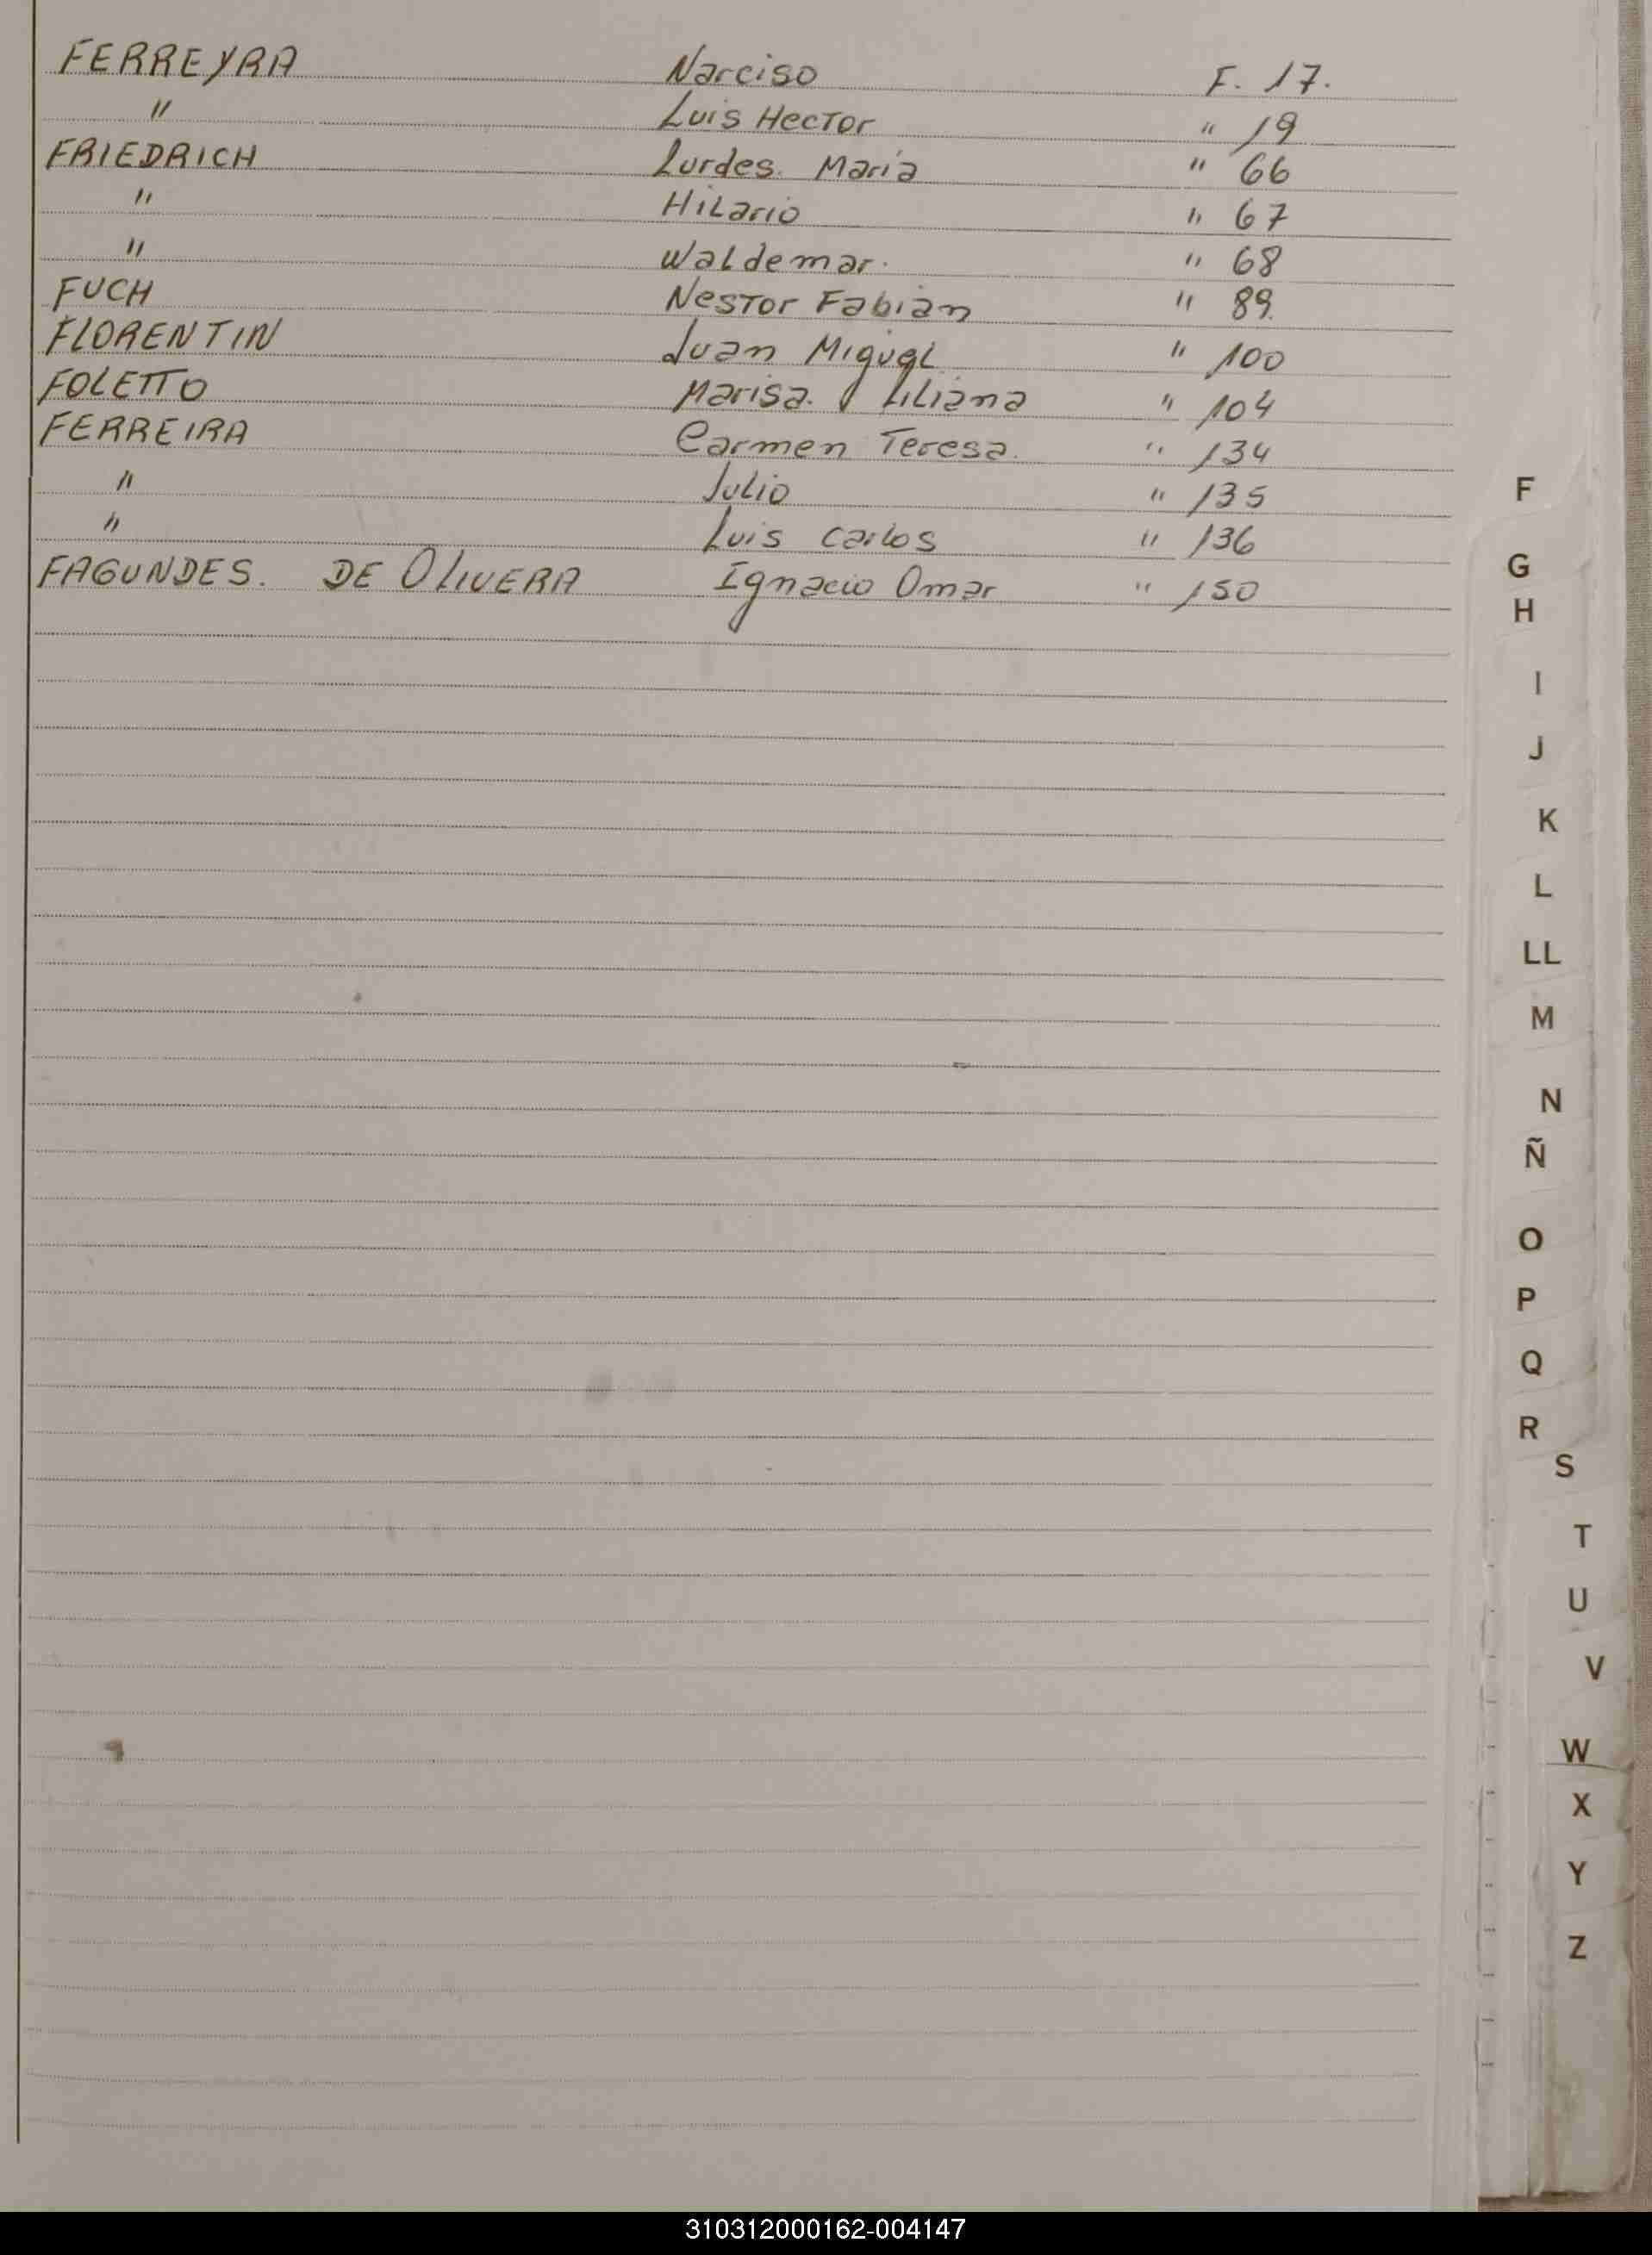 FERREYRA Narciso F. 17.
" Luis Hector " 19
FRIEDRICH Lurdes. María " 66
" Hilario " 67
" Waldemar. " 68
FUCH Nestor Fabian " 89.
FLORENTIN Juan Miguel " 100
FOLETTO Marisa. Liliana " 104
FERREIRA Carmen Teresa. " 134
" Julio " 135
" Luis Carlos " 136
FAGUNDES. DE OLIVERA Ignacio Omar " 150
F
G
H
I
J
K
L
LL
M
N
Ñ
O
P
Q
R
S
T
U
V
W
X
Y
Z
310312000162-004147